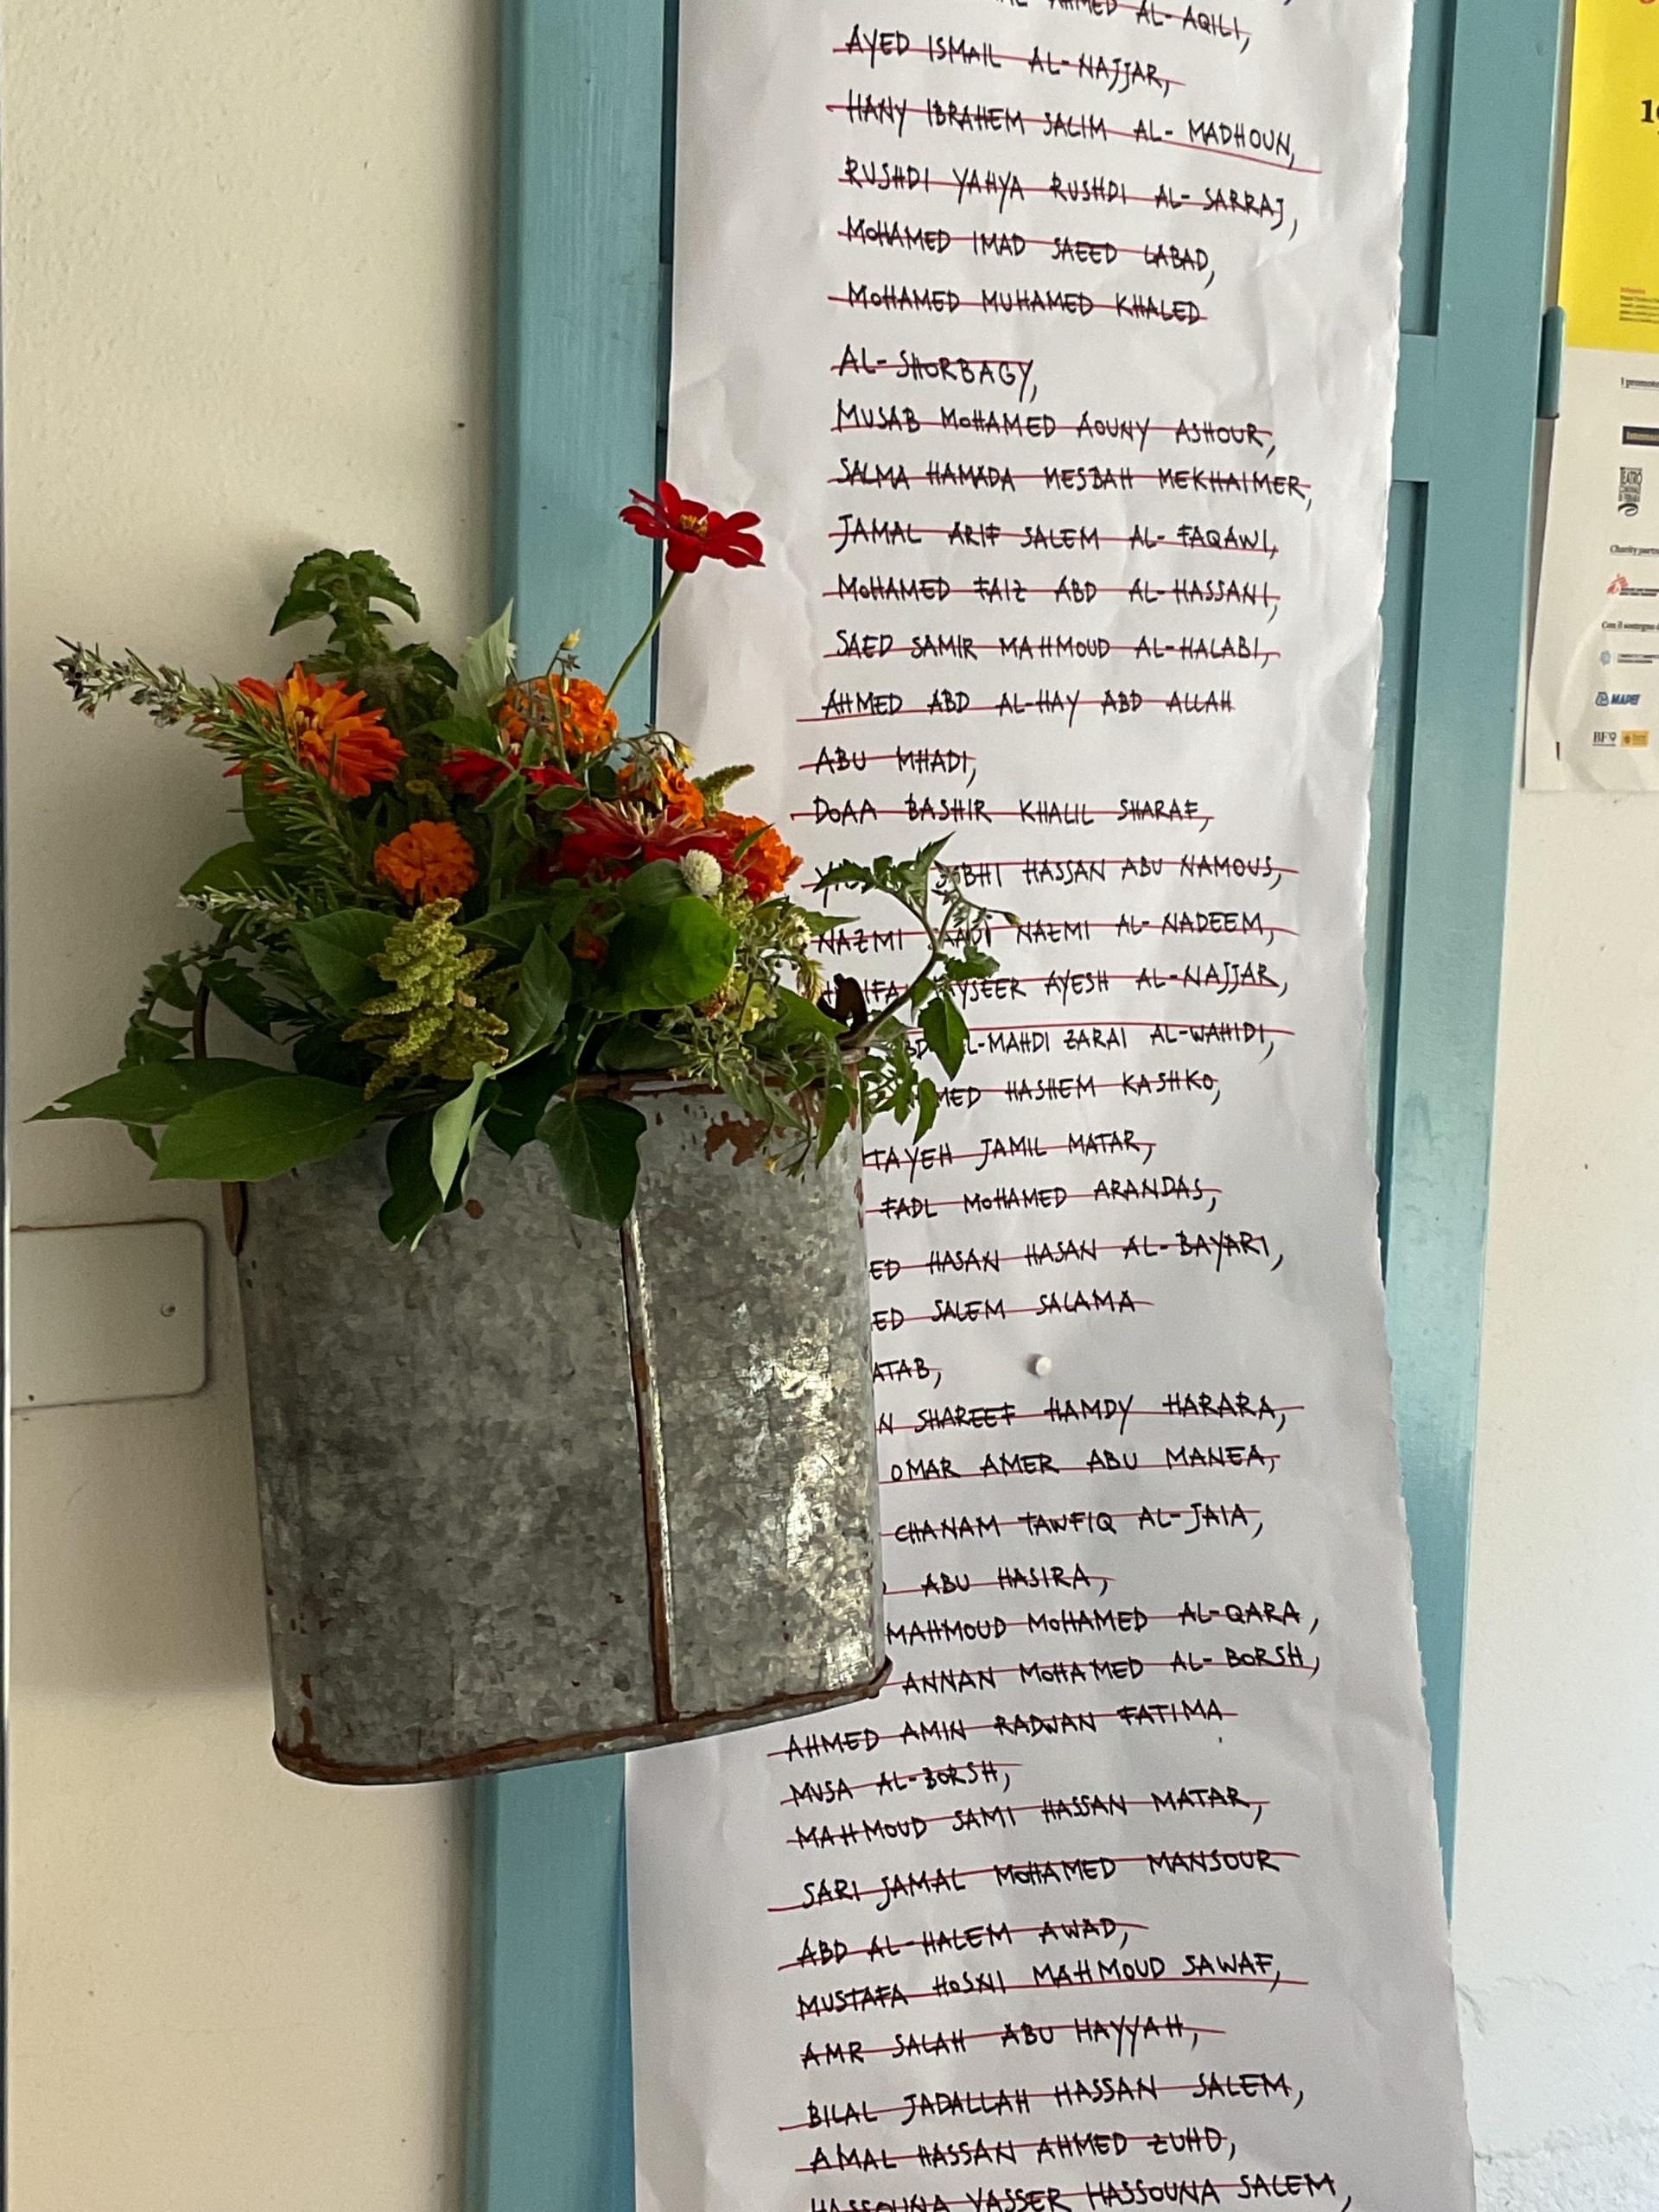 AHMED AL-AQILI,
AYED ISMAIL AL-NAJJAR,
HANY IBRAHEM SALIM AL-MADHOUN,
RUSHDI YAHYA RUSHDI AL-SARRAJ,
MOHAMED IMAD SAEED LABAD,
MOHAMED MUHAMED KHALED
AL-SHORBAGY,
MUSAB MOHAMED AOUNY ASHOUR,
SALMA HAMADA MESBAH MEKHAIMER,
JAMAL ARIF SALEM AL-FAQAWI,
MOHAMED FAIZ ABD AL-HASSANI,
SAED SAMIR MAHMOUD AL-HALABI,
AHMED ABD AL-HAY ABD ALLAH
ABU MHADI,
DOAA BASHIR KHALIL SHARAF,
HASSAN ABU NAMOUS,
NAZMI NAZMI AL-NADEEM,
AYESH AL-NAJJAR,
L-MAHDI ZARAI AL-WAHIDI,
MED HASHEM KASHKO,
TAYEH JAMIL MATAR,
FADL MOHAMED ARANDAS,
ED HASAN HASAN AL-BAYARI,
ED SALEM SALAMA
ATAB,
N SHAREEF HAMDY HARARA,
OMAR AMER ABU MANEA,
CHANAM TAWFIQ AL-JAIA,
ABU HASIRA,
MAHMOUD MOHAMED AL-QARA,
ANNAN MOHAMED AL-BORSH,
AHMED AMIN RADWAN FATIMA
MUSA AL-BORSH,
MAHMOUD SAMI HASSAN MATAR,
SARI JAMAL MOHAMED MANSOUR
ABD AL-HALEM AWAD,
MUSTAFA HOSNI MAHMOUD SAWAF,
AMR SALAH ABU HAYYAH,
BILAL JADALLAH HASSAN SALEM,
AMAL HASSAN AHMED ZUHD,
HASSOUNA YASSER HASSOUNA SALEM,
I promoto
Internaz
TEATRO
COMUNALE
DI FERRARA
Charity partn
Con il sostegno d
MAPEI
BF